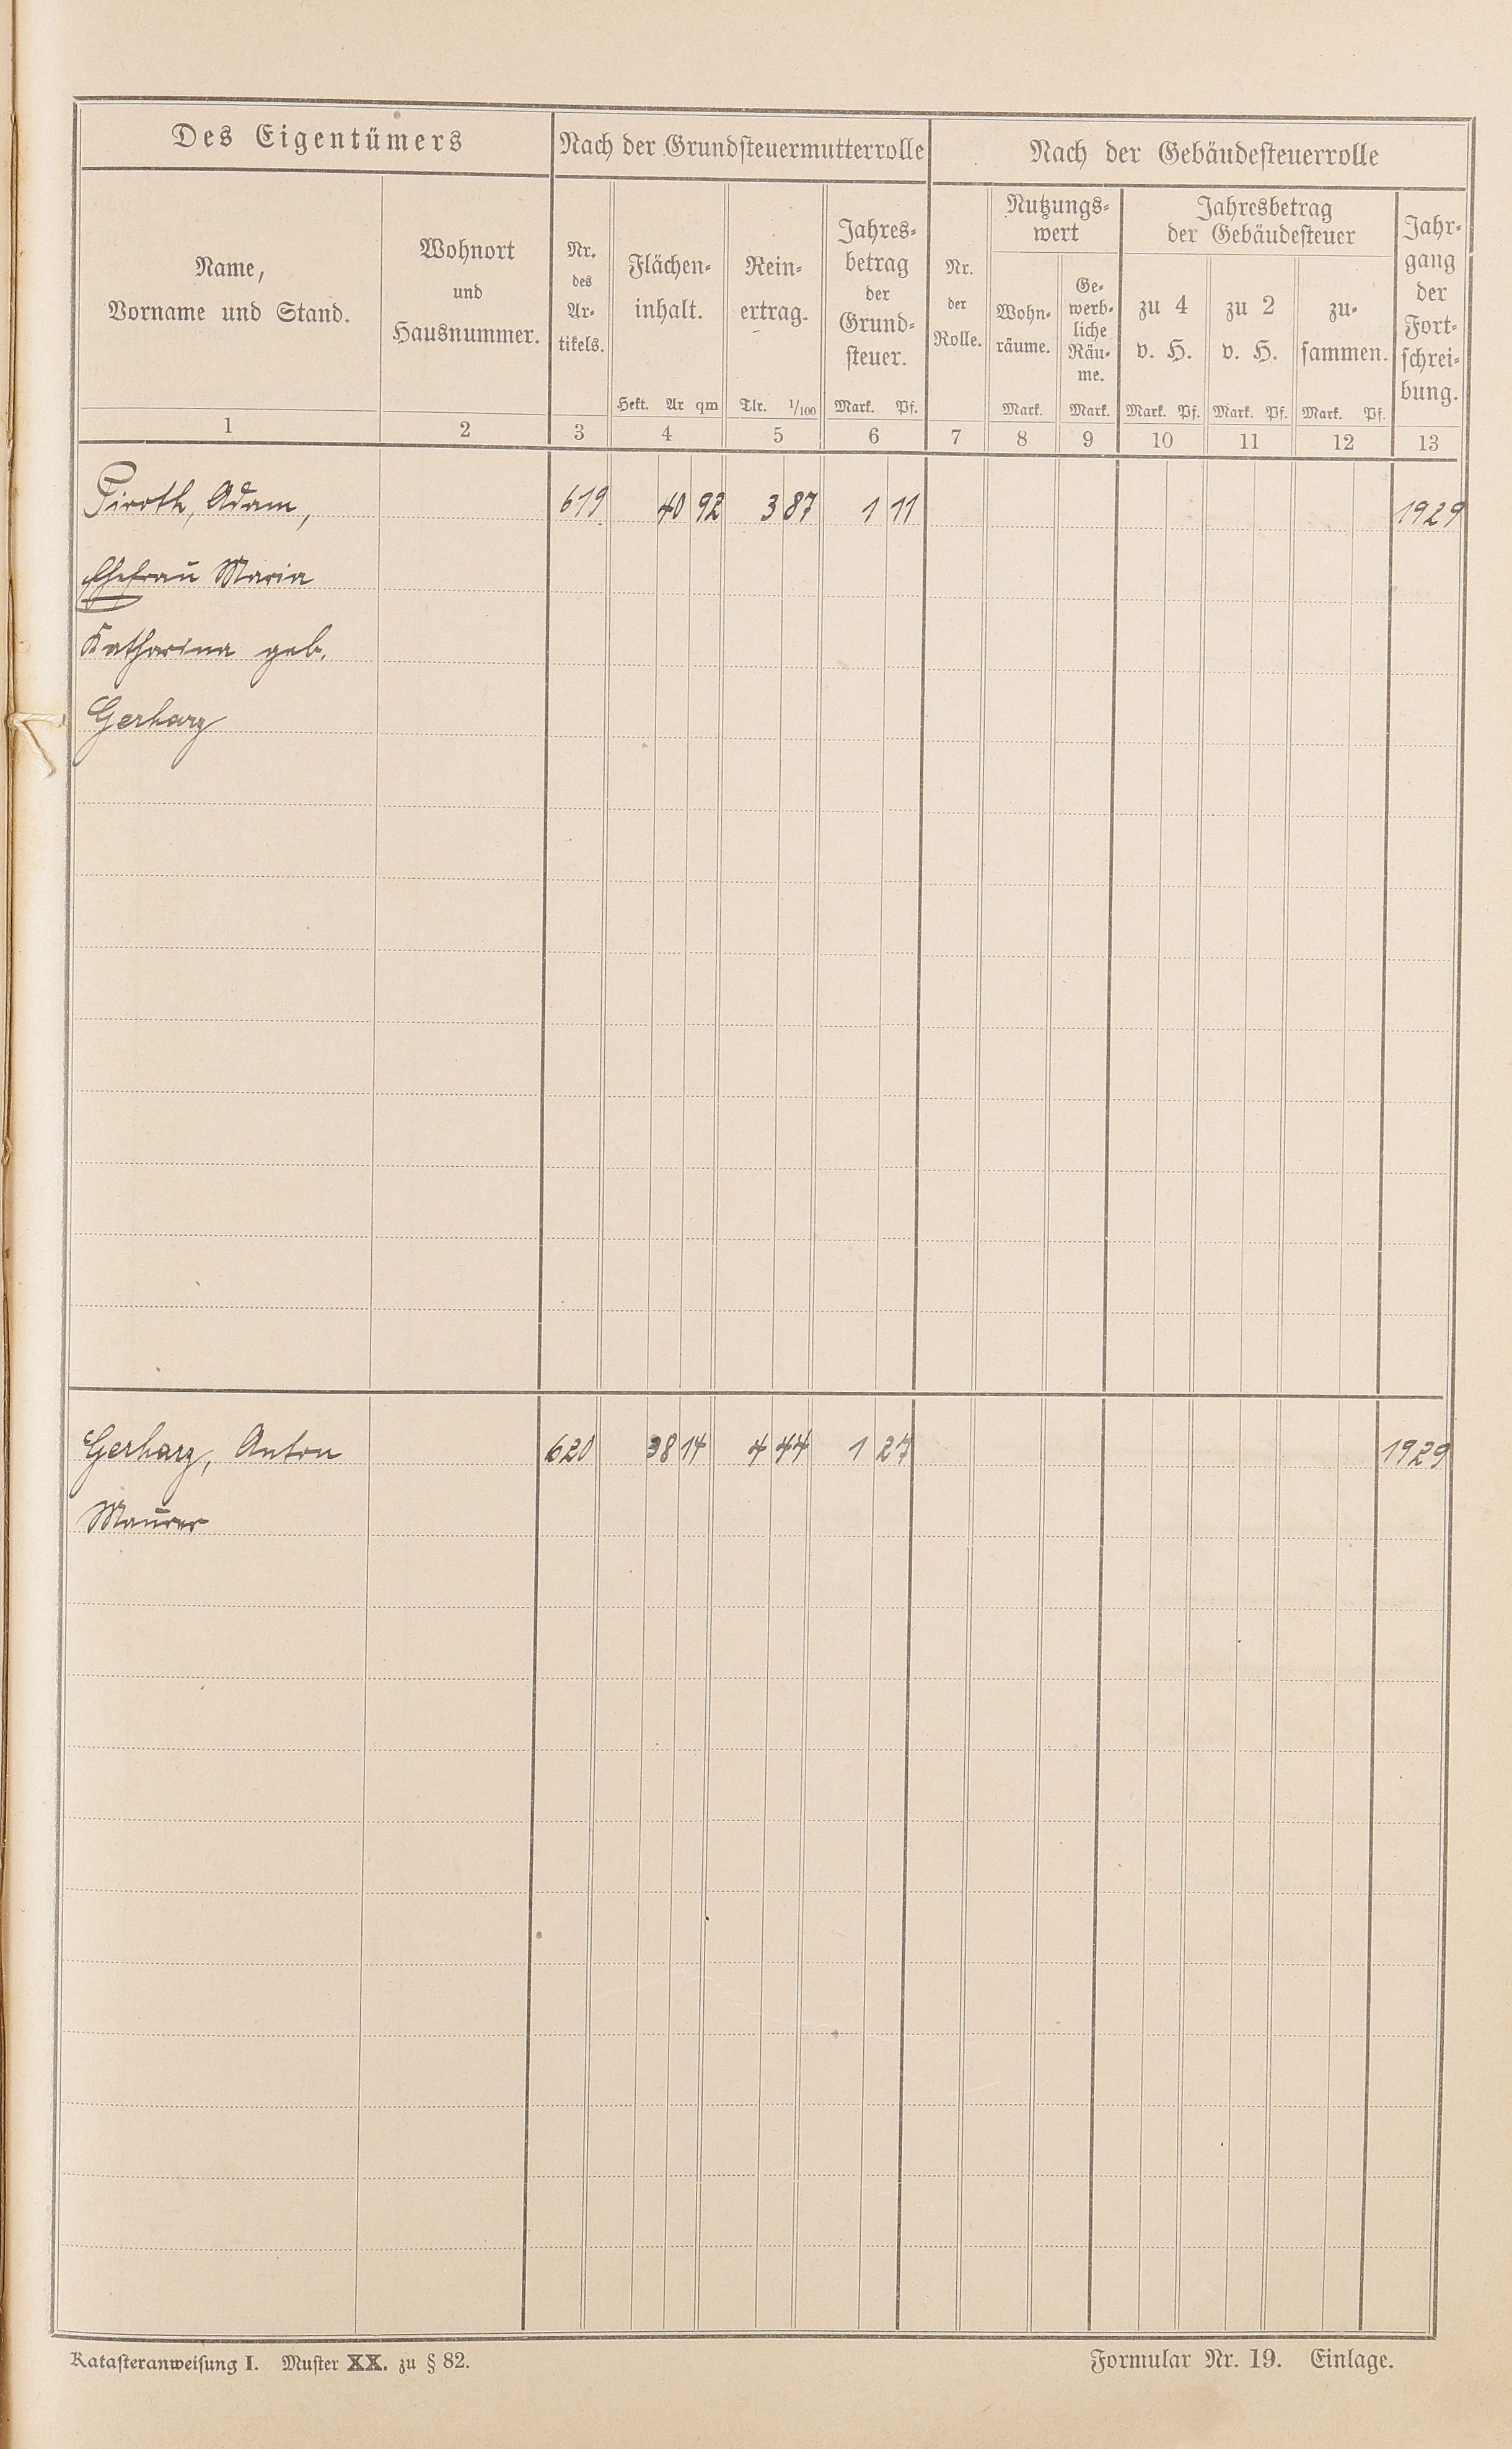 Des Eigentümers
Nach der Grundsteuermutterrolle
Nach der Gebäudesteuerrolle
Name,
Vorname und Stand.
Wohnort
und
Hausnummer.
Nr.
des
Ar-
tikels.
Flächen-
inhalt.
Hekt. Ar qm
Rein-
ertrag.
Tlr. 1/100
Jahres-
betrag
der
Grund-
steuer.
Mark. Pf.
Nr.
der
Rolle.
Nutzungs-
wert
Wohn-
räume.
Mark.
Ge-
werb-
liche
Räu-
me.
Mark.
Jahresbetrag
der Gebäudesteuer
zu 4
v. H.
Mark. Pf.
zu 2
v. H.
Mark. Pf.
zu-
sammen.
Mark. Pf.
Jahr-
gang
der
Fort-
schrei-
bung.
1 2 3 4 5 6 7 8 9 10 11 12 13
Piroth, Adam, 619 40 92 3 87 1 11 1929
Ehefrau Maria
Katharina geb.
Gerharz
Gerharz, Anton 620 38 14 4 44 1 27 1929
Maurer
Katasteranweisung I. Muster XX. zu § 82.
Formular Nr. 19. Einlage.